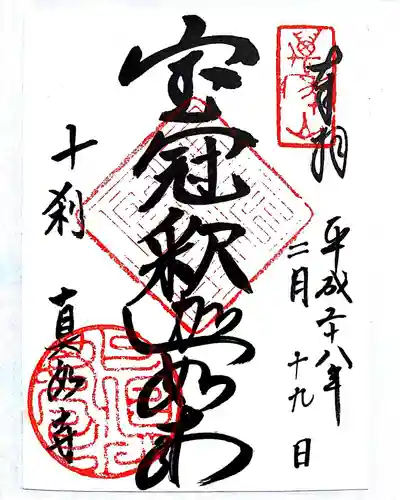 奉拝
平成二十八年
二月 十九日
宝冠釈迦如来
十刹
真如寺